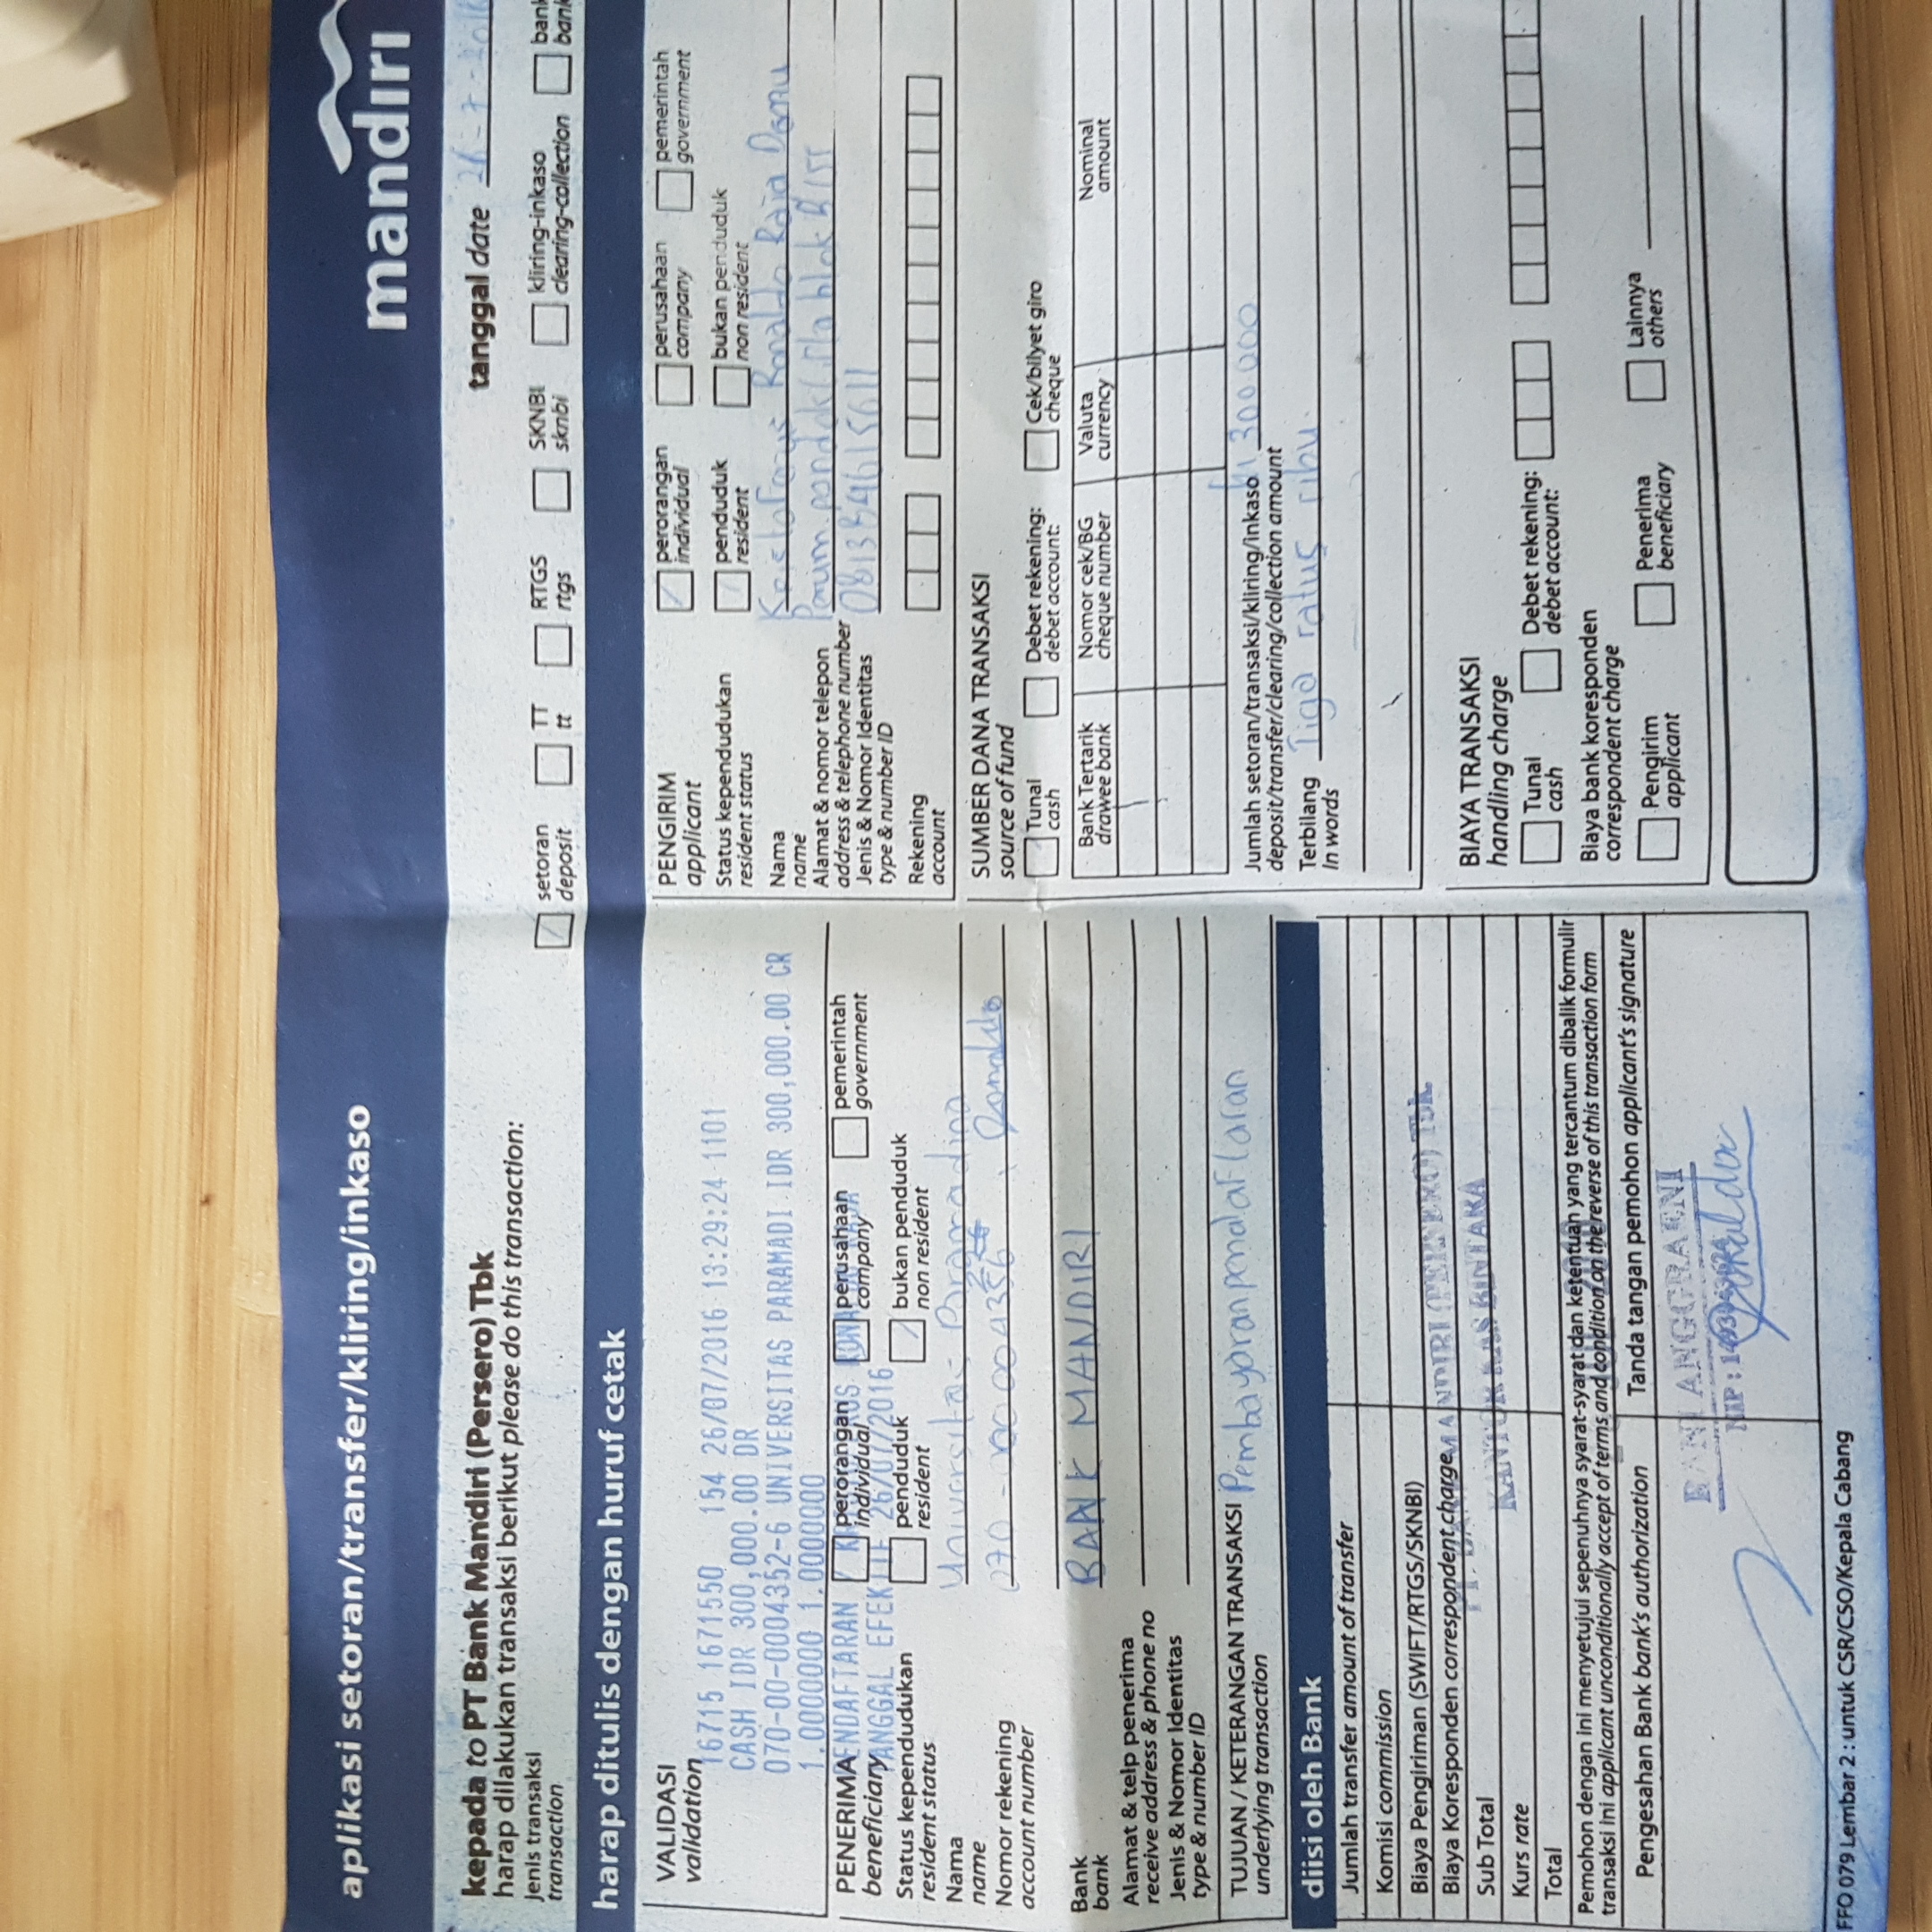 aplikasi setoran/transfer/kliring/inkaso
mandiri
kepada to PT Bank Mandiri (Persero) Tbk
harap dilakukan transaksi berikut please do this transaction:
tanggal date 26-7-2016
Jenis transaksi
transaction
setoran
deposit
TT
tt
RTGS
rtgs
SKNBI
sknbi
kliring-inkaso
clearing-collection
bank
bank
harap ditulis dengan huruf cetak
VALIDASI
validation
16715 1671550 154 26/07/2016 13:29:24 1101
CASH IDR 300,000.00 DR
070-00-0004352-6 UNIVERSITAS PARAMADI IDR 300,000.00 CR
1.0000000 1.0000000
PENDAFTARAN / KRISTOFORUS RONALDO RAJA
TANGGAL EFEKTIF 26/07/2016
PENERIMA
beneficiary
perorangan
individual
perusahaan
company
pemerintah
government
Status kependudukan
resident status
penduduk
resident
bukan penduduk
non resident
Nama
name
Universitas Paramadina
Nomor rekening
account number
Ronaldo
Bank
bank
BANK MANDIRI
Alamat & telp penerima
receive address & phone no
Jenis & Nomor Identitas
type & number ID
TUJUAN / KETERANGAN TRANSAKSI Pembayaran pendaftaran
underlying transaction
diisi oleh Bank
Jumlah transfer amount of transfer
Komisi commission
Biaya Pengiriman (SWIFT/RTGS/SKNBI)
Biaya Koresponden correspondent charge
Sub Total
Kurs rate
Total
PT. BANK MANDIRI (PERSERO) Tbk.
KANTOR KAS BINTARA
Pemohon dengan ini menyetujui sepenuhnya syarat-syarat dan ketentuan yang tercantum dibalik formulir
transaksi ini applicant unconditionally accept of terms and condition on the reverse of this transaction form
JUL 2016
Pengesahan Bank bank's authorization
Tanda tangan pemohon applicant's signature
RANI ANGGRAENI
NIP :
Ronaldo
FFO 079 Lembar 2 : untuk CSR/CSO/Kepala Cabang
PENGIRIM
applicant
perorangan
individual
perusahaan
company
pemerintah
government
Status kependudukan
resident status
penduduk
resident
bukan penduduk
non resident
Nama
name
Kristoforus Ronaldo Raja
Alamat & nomor telepon
address & telephone number
Perum. pondok blok
Jenis & Nomor Identitas
type & number ID
081384615611
Rekening
account
SUMBER DANA TRANSAKSI
source of fund
Tunai
cash
Debet rekening:
debet account:
Cek/bilyet giro
cheque
Bank Tertarik
drawee bank
Nomor cek/BG
cheque number
Valuta
currency
Nominal
amount
Jumlah setoran/transaksi/kliring/inkaso 300.000
deposit/transfer/clearing/collection amount
Terbilang
In words
Tiga ratus ribu.
BIAYA TRANSAKSI
handling charge
Tunai
cash
Debet rekening:
debet account:
Biaya bank koresponden
correspondent charge
Pengirim
applicant
Penerima
beneficiary
Lainnya
others